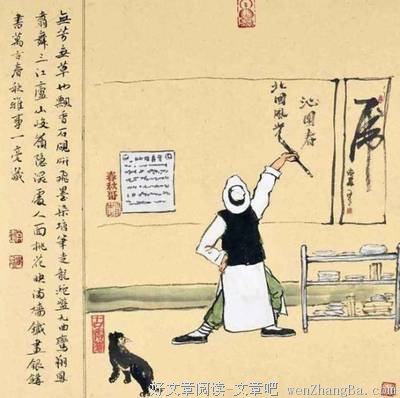 無芳無草也飄香石硯研飛墨染塘筆走龍蛇盤九曲鸞翔鳳
翥舞三江廬山峻嶺隱深處人面桃花映滿墻鐵畫銀鉤
書萬古春秋雅事一毫藏
沁園春
北國風光
虎
春秋哥
好文章阅读-文章吧 wenZhangBa.com